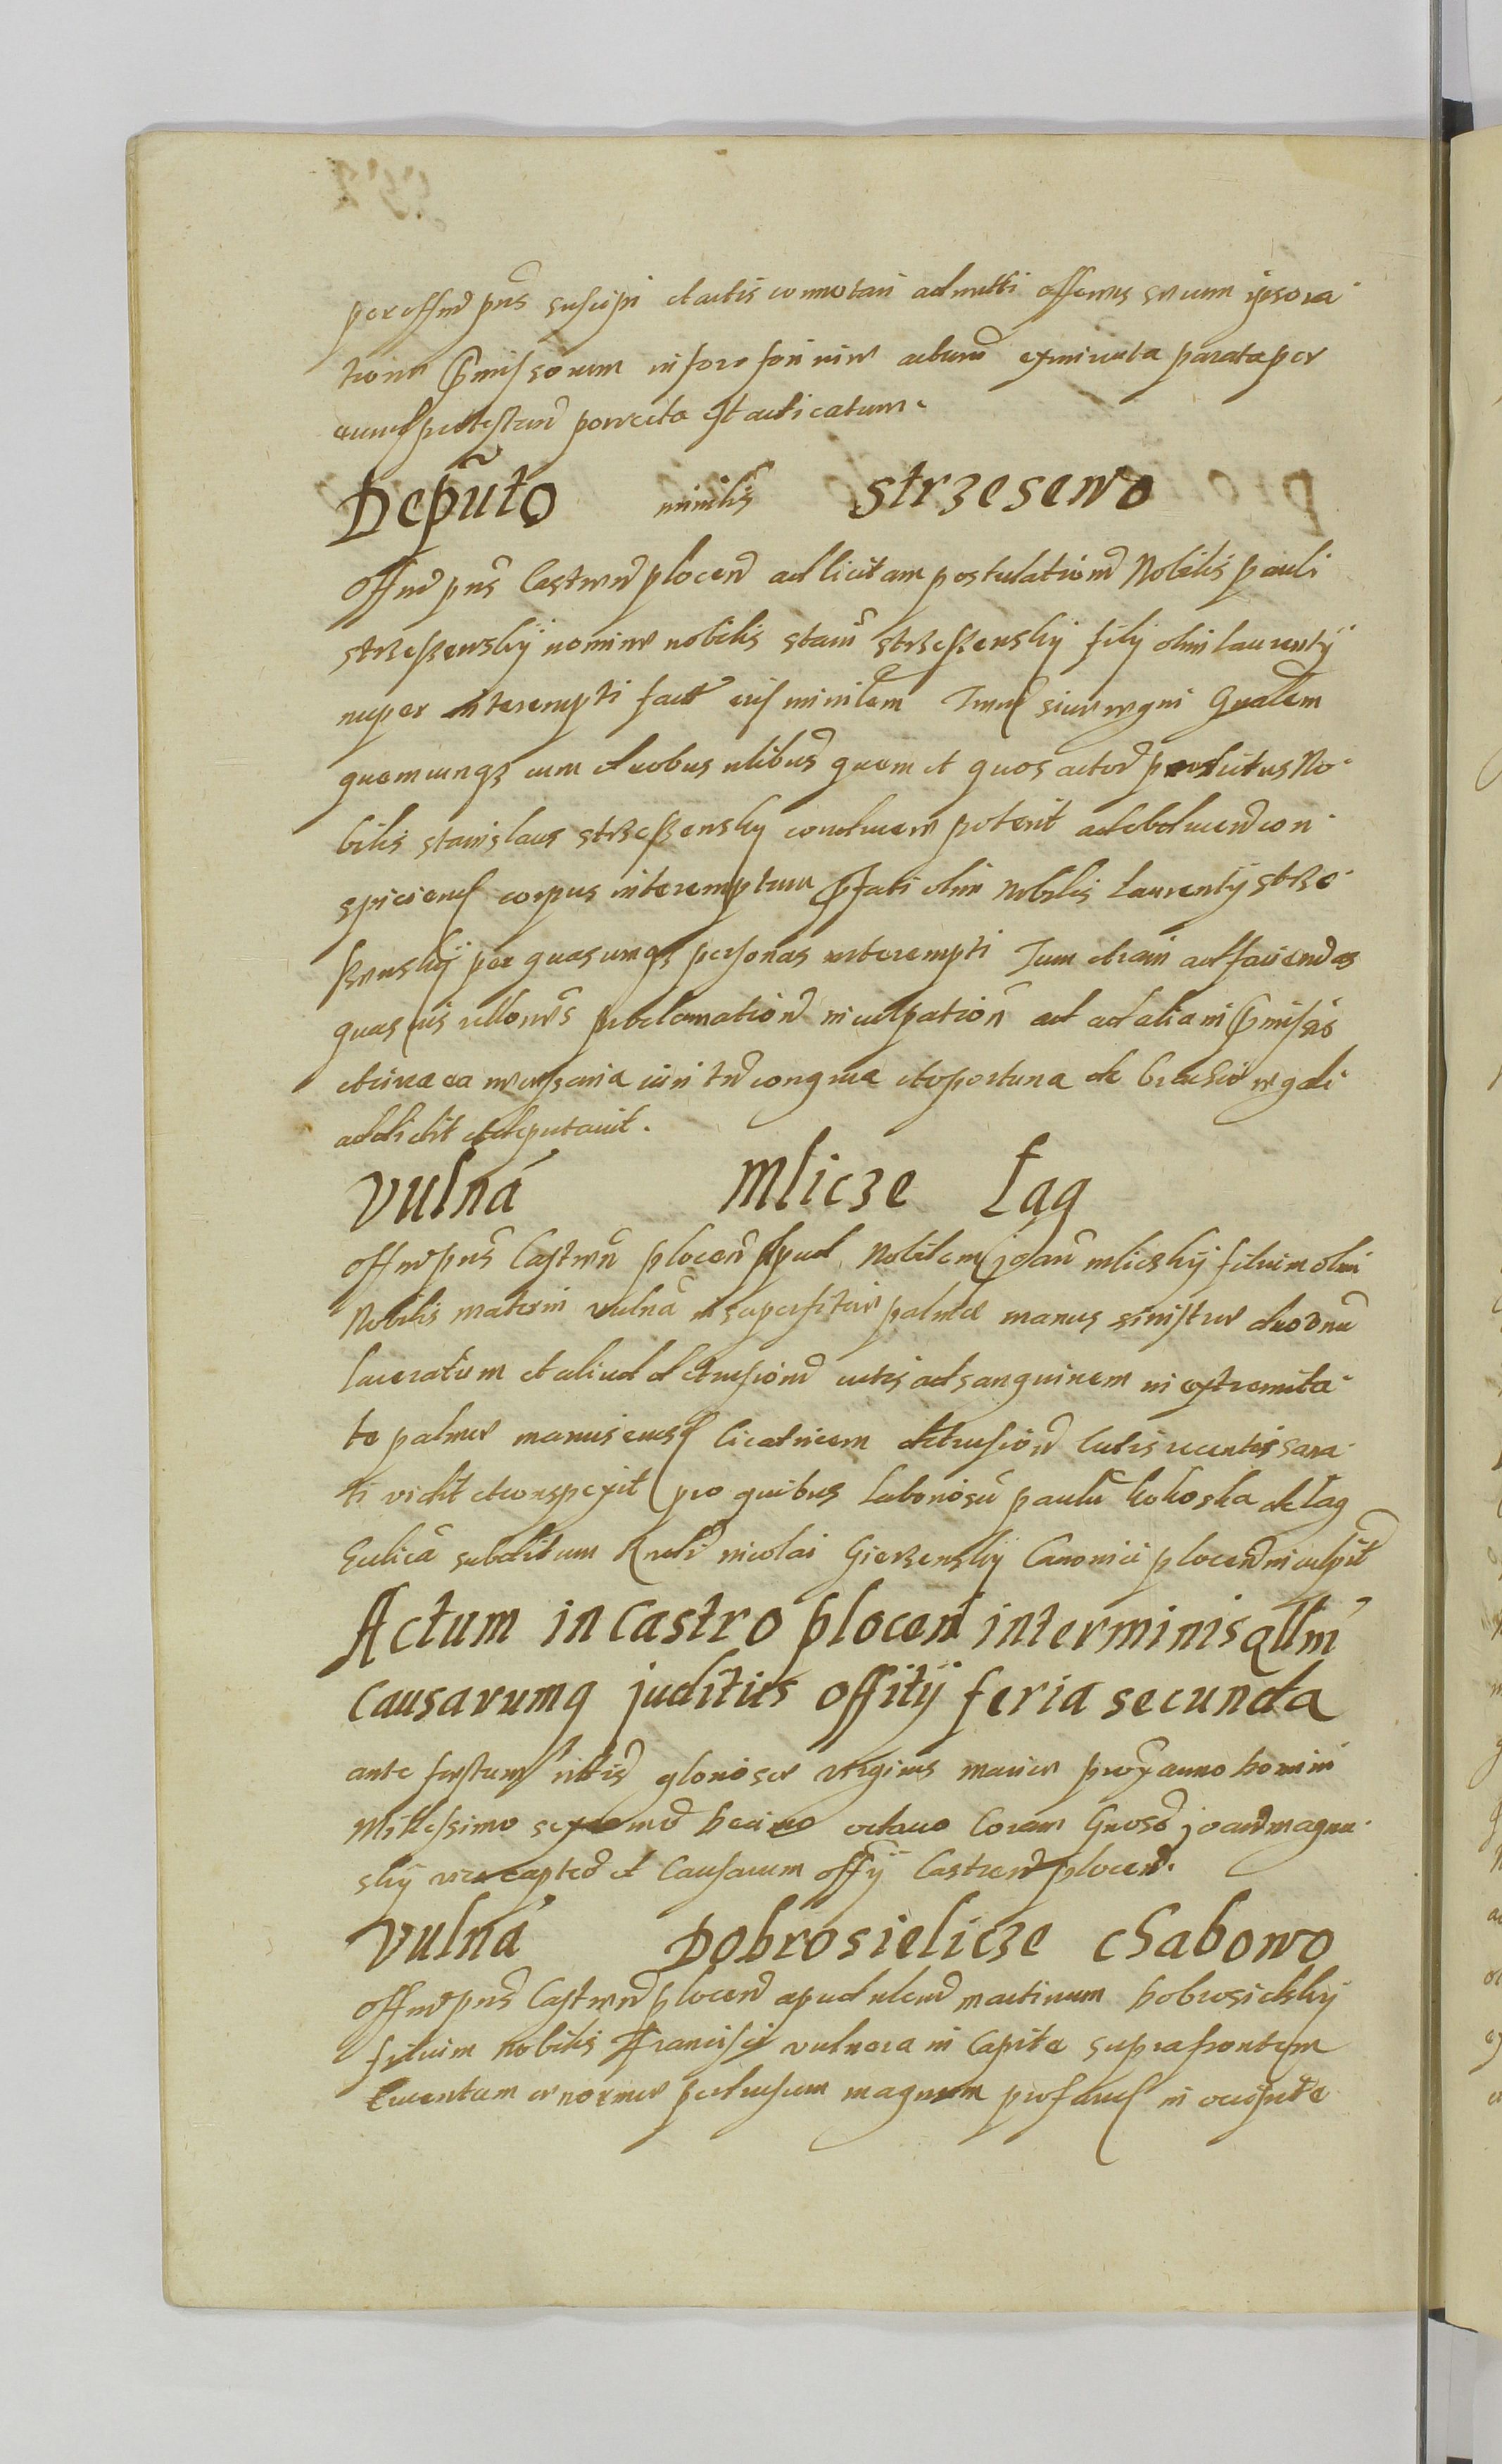 per offm pns suscipi et actis connotari admitti offerens se cum ipso ra-
tione pmissorum in foro fori iure acturu ex minuta parata per
eund protestan porrecta est acticatum.
Deputo minilis strzesewo
Offm pns Castren plocen ad licitam postulatione Nobilis pauli
strzeszewsky nomine nobilis stani strzeszewsky filij olim laurentij
nuper interempti fact eius minilem Imd siue regni Gnalem
quemcunqz cum duobus nlibus quem et quos actor producit us No-
bilis stanislaus strzeszewsky conducere poterit ad obducen con-
spiciend corpus interemptum pfati olim Nobilis laurentij strze-
szewskij per quascunqz personas interempti Tum etiam ad faciendas
quasuis proclamation inculpation ad alia in pmissis
et circa ea necessaria iuri tn congrua et oportuna de brachio regali
addidit et deputauit.
vulna Mlicze Lag
offm pns Castren plocen apud Nobilem joan mliczkij filium olim
Nobilis vulna in superficie palmae manus sinistrae duo unu
laceratum et aliud detrusione cutis ad sanguinem in extremita-
te palmae manus eiusd Cicatricem detrusion Cutis recentis sana-
ti vidit et conspexit pro quibus laboriosu paulu kokoska de lag
subditum Rndi nicolai Gierzewsky Canonici plocen inculpat
Actum in castro plocen in terminis qllm
causarumq juditiis offitij feria secunda
ante festum gloriosae virginis mariae prox anno Domini
Millessimo sexcentmo Decimo octauo Coram Gnoso joan magnu-
skij vice capteo et Causarum offij Castren plocen.
vulna Dobrosielicze chabowo
offm pns Castren plocen apud martinum Dobrosielsky
filium Nobilis Francisci vulnera in Capite supra frontem
Cruentum magnum in occipite